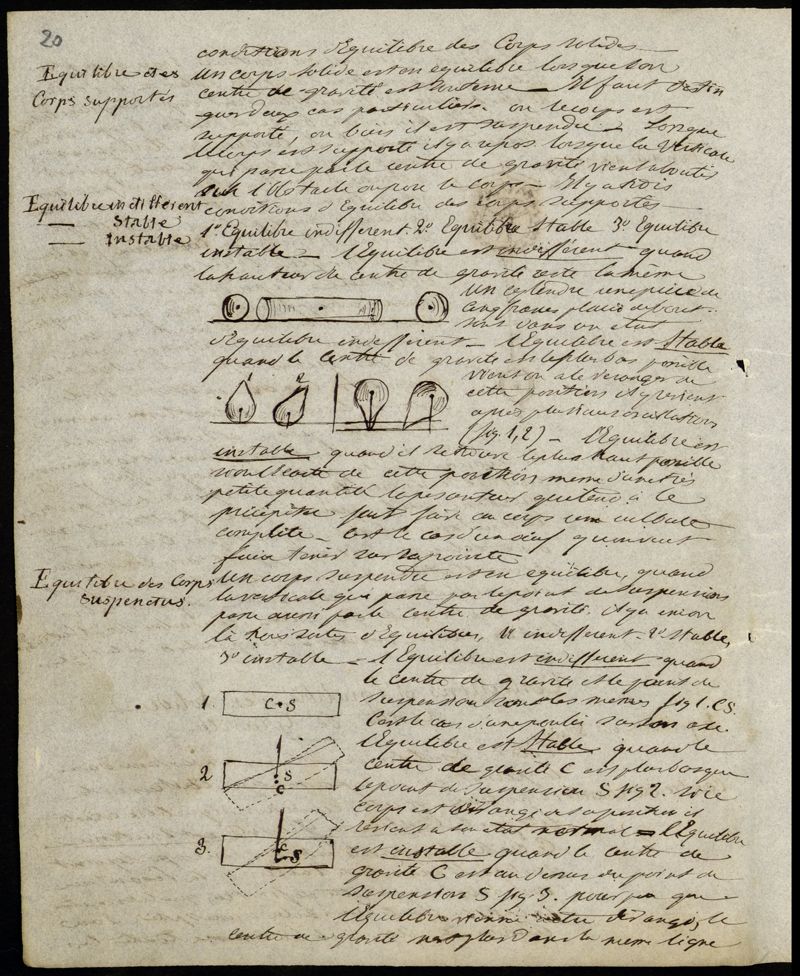 20
conditions d'Equilibre des Corps solides
Equilibre des
Corps supportés
un corps solide est en equilibre lorsque son
centre de gravité est soutenu _ Il faut distin
guer deux cas particuliers ou le corps est
supporté, ou bien il est suspendu _ Lorsque
le corps est supporté il y a repos lorsque la Verticale
qui passe par le centre de gravité vient aboutir
sur l'obstacle ou pose le corps _ Il y a trois
Equilibre indifférent
_ Stable
_ instable
conditions d'Equilibre des corps supportés
1º Equilibre indifferent 2º Equilibre stable 3º Equilibre
instable _ l'Equilibre est indifférent quand
la hauteur du centre de gravité reste la meme
un cylindre une pièce de
cinq francs placée debout
sont dans un etat
d'Equilibre indifférent _ l'Equilibre est Stable
quand le Centre de gravité est le plus bas possible
vient on a le deranger de
cette position il y revient
apres plusieurs oscillations
(fig. 1, 2) _ l'Equilibre est
instable quand il se trouve le plus haut possible
de cette position meme d'une très
petite quantité la pesanteur qui tend à le
précipiter fait faire au corps une culbute
complete _ c'est le cas d'un œuf qu'on veut
faire tenir sur sa pointe
Equilibre des Corps
Suspendus.
Un corps suspendu est en équilibre, quand
la verticale qui passe par le point de suspension
passe aussi par le centre de gravité il y a encore
la trois sortes d'Equilibre, 1º indifferent 2º stable,
3º instable _ l'Equilibre est indifférent quand
le centre de gravité et le point de
suspension sont les memes fig 1. CS.
1. C S
C'est le cas d'une poulie sur son axe.
l'Equilibre est Stable quand le
centre de gravité C est plus bas que
2 S
C
le point de suspension S fig 2. si ce
corps est dérangé de sa position il
revient a son état normal = l'Equilibre
3. C S
est instable quand le centre de
gravité C est au dessus du point de
suspension S fig 3. pour peu que
l'Equilibre vienne a etre dérangé, le
centre de gravité n'est plus dans la meme ligne